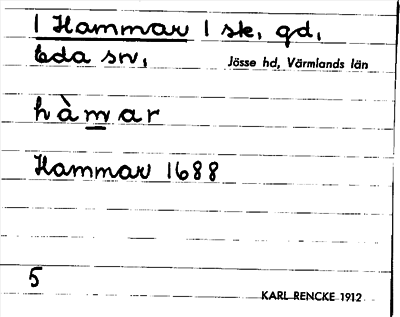 1 Hammar 1 sk, gd,
Eda sn,
Jösse hd, Värmlands län
hàmar
Hammar 1688
5
KARL RENCKE 1912